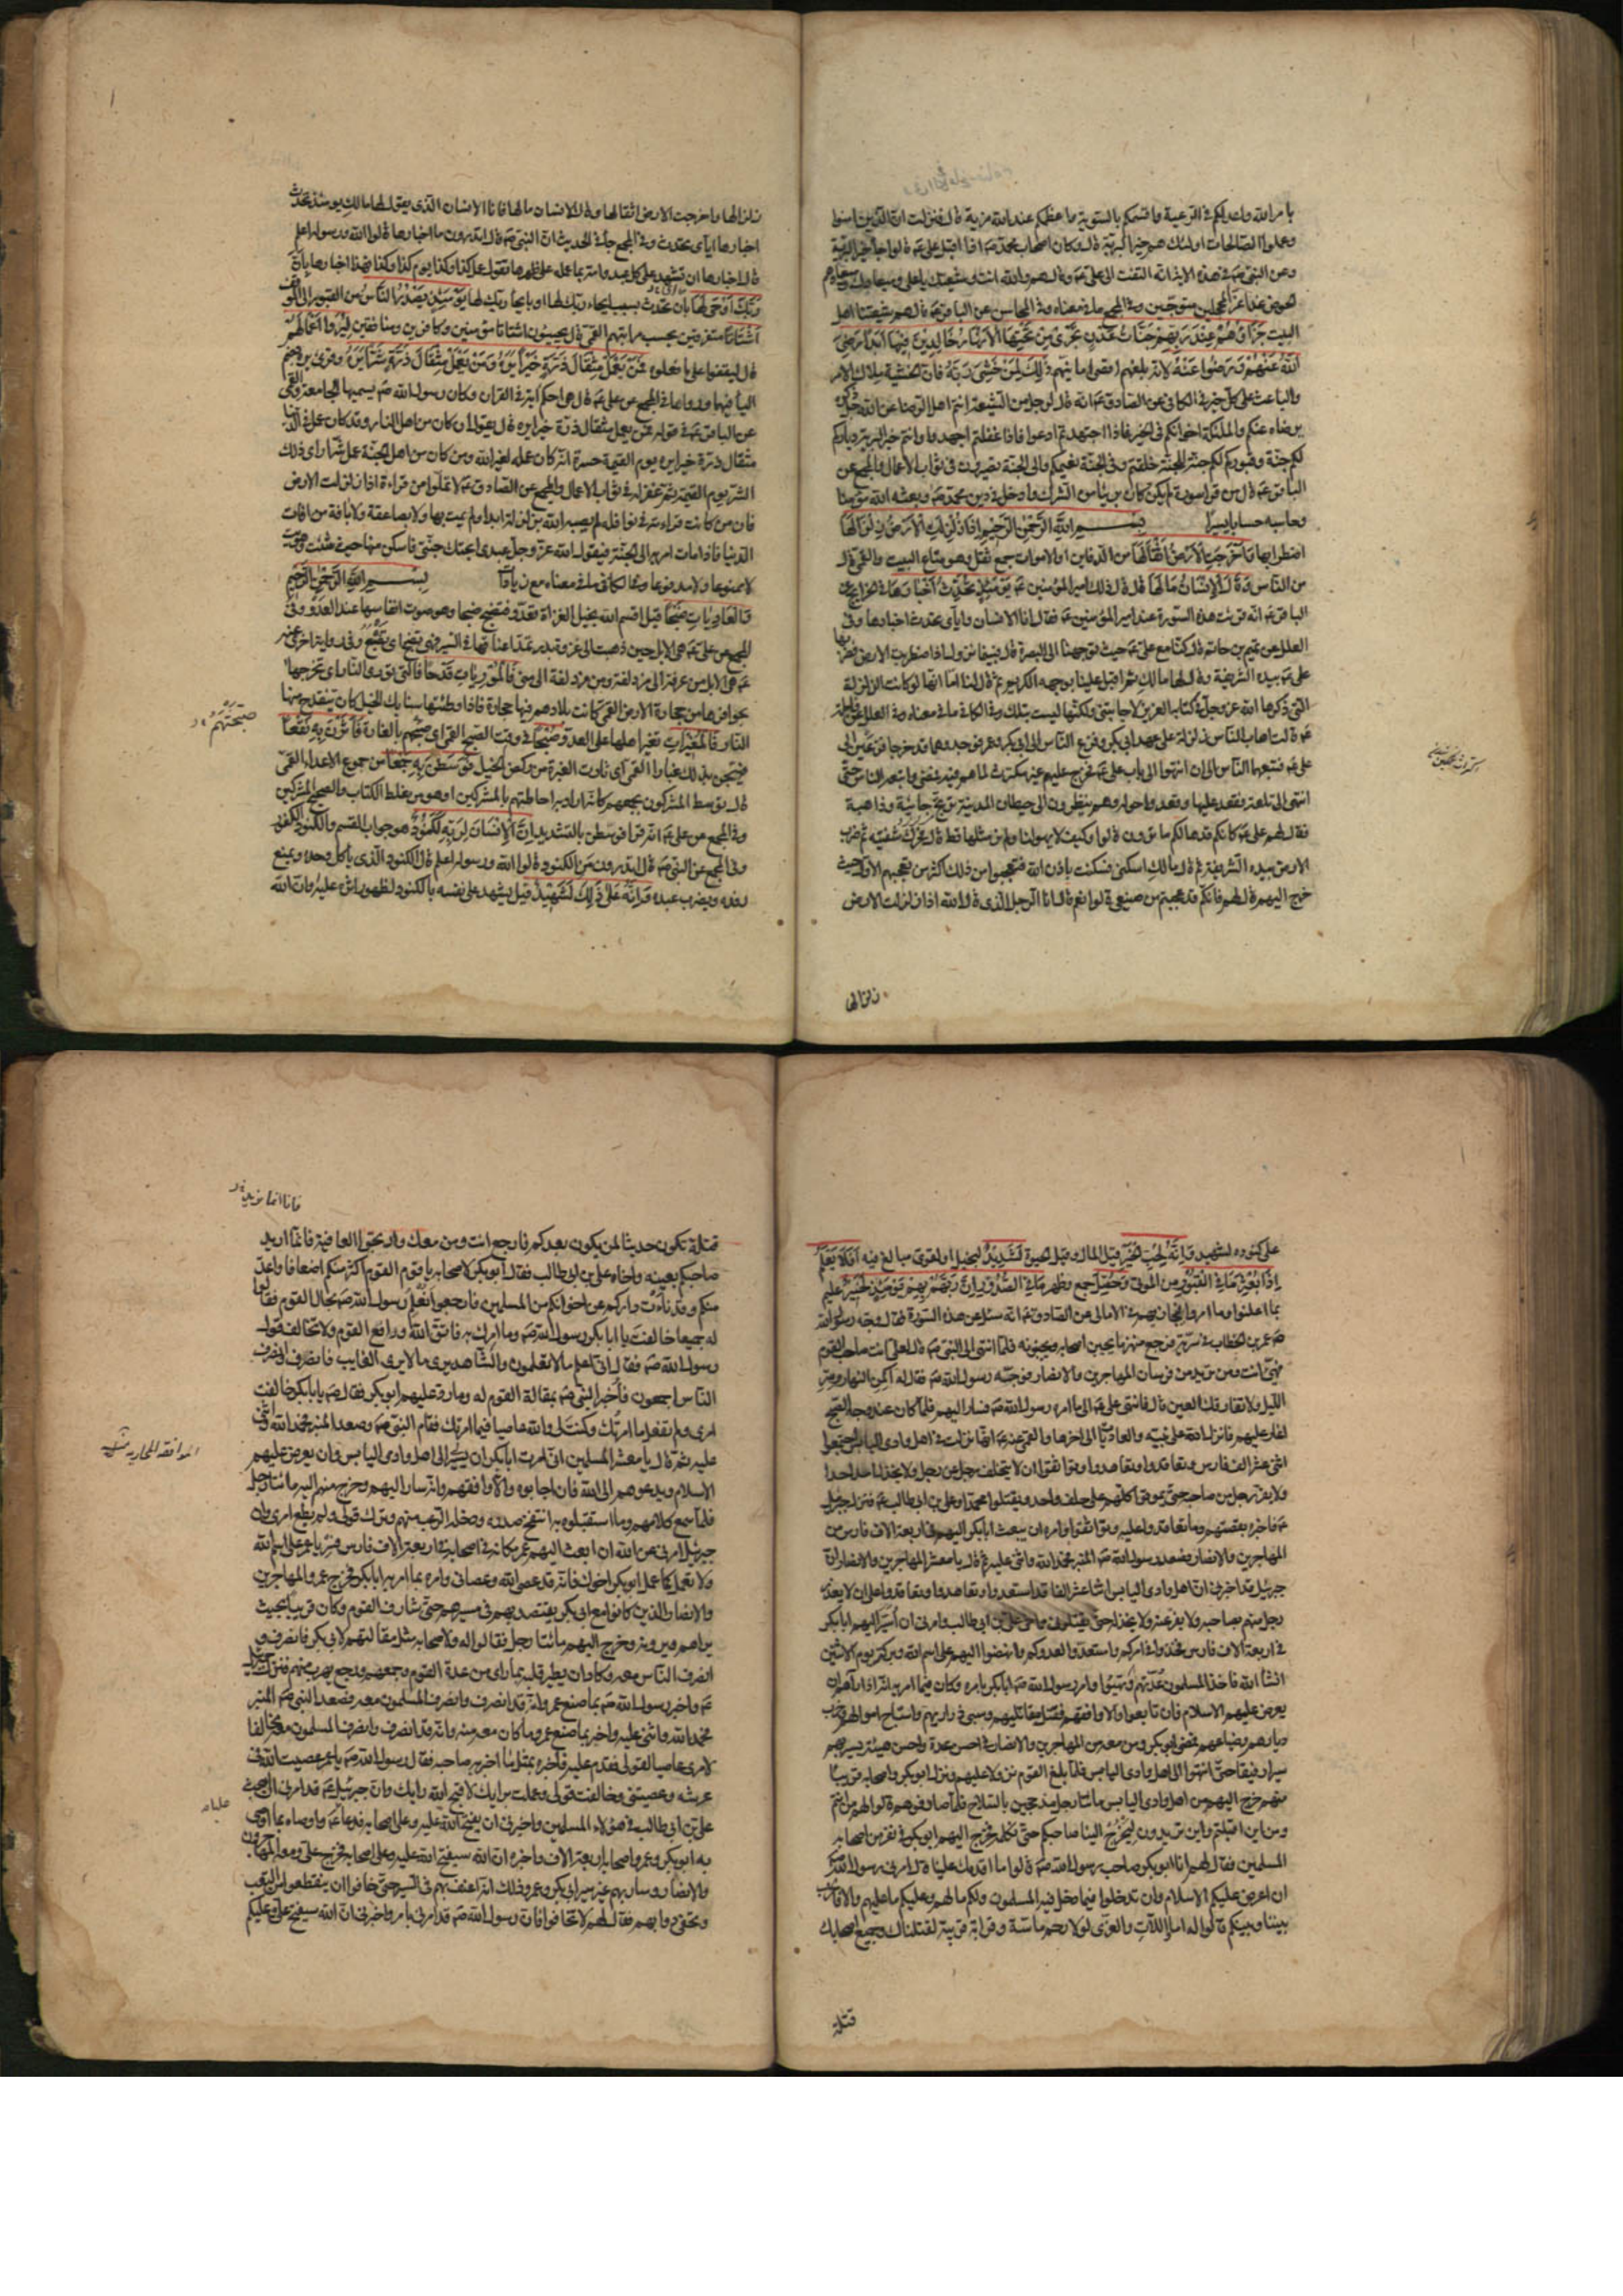 بامر الله واعدلكم في الرعية واقسمكم بالسوية واعظمكم عند الله مزية قال فنزلت ان الذين امنوا
وعملوا الصالحات اولئك هم خير البرية قال وكان اصحاب محمد صه اذا اقبل علي عه قالوا جاء خير البرية
وعن النبي صه في هذه الاية انه التفت الى علي عه وقال هم والله انت وشيعتك يا علي وميعادك وميعادهم
الحوض غدا غرا محجلين متوجين وفي المجمع ما في معناه وفي المحاسن عن الباقر عه قال هم شيعتنا اهل
البيت جَزَاؤُهُمْ عِنْدَ رَبِّهِمْ جَنَّاتُ عَدْنٍ تَجْرِي مِنْ تَحْتِهَا الْأَنْهَارُ خَالِدِينَ فِيهَا أَبَدًا رَضِيَ
اللَّهُ عَنْهُمْ وَرَضُوا عَنْهُ لانه بلغهم اقصى امانيهم ذَلِكَ لِمَنْ خَشِيَ رَبَّهُ فان الخشية ملاك الامر
والباعث على كل خير في الكافي عن الصادق عه انه قال لرجل من الشيعة انتم اهل الرضا عن الله جل ذكره
برضاه عنكم والملئكة اخوانكم في الخير فاذا اجتهدتم ادعوا فاذا غفلتم اجهدوا وانتم خير البرية دياركم
لكم جنة وقبوركم لكم جنة للجنة خلقتم وفي الجنة نعيمكم والى الجنة تصيرون في ثواب الاعمال والمجمع عن
الباقر عه قال من قرا سورة لم يكن كان بريئا من الشرك وادخل في دين محمد صه وبعثه الله مؤمنا
وحاسبه حسابا يسيرا بسم الله الرحمن الرحيم إِذَا زُلْزِلَتِ الْأَرْضُ زِلْزَالَهَا
اضطرابها وَأَخْرَجَتِ الْأَرْضُ أَثْقَالَهَا من الدفاين او الاموات جمع ثقل وهو متاع البيت والقمي قال
من الناس وَقَالَ الْإِنْسَانُ مَا لَهَا قال ذلك امير المؤمنين عه يَوْمَئِذٍ تُحَدِّثُ أَخْبَارَهَا في الخرايج عن
الباقر عه انه قرئت هذه السورة عند امير المؤمنين عه فقال انا الانسان واياي تحدث اخبارها وفي
العلل عن تميم بن حاتم قال كنا مع علي عه حيث توجهنا الى البصرة قال فبينما نحن نزول اذا اضطربت الارض فضربها
علي عه بيده الشريفة وقال لها مالك ثم اقبل علينا بوجهه الكريم ثم قال لنا اما انها لو كانت الزلزلة
التي ذكرها الله عز وجل في كتابه العزيز لاجابتني ولكنها ليست بتلك وفي الكافي ما في معناه وفي العلل عن فاطمة
عه قالت اصاب الناس زلزلة على عهد ابي بكر وفزع الناس الى ابي بكر وعمر فوجدوهما قد خرجا فزعين الى
علي عه فتبعهما الناس الى ان انتهوا الى باب علي عه فخرج عليهم غير مكترث لما هم فيه فمضى واتبعه الناس حتى
انتهى الى تلعة فقعد عليها وقعدوا حوله وهم ينظرون الى حيطان المدينة ترتج جائية وذاهبة
فقال لهم علي عه كانكم قد هالكم ما ترون قالوا وكيف لا يهولنا ولم نر مثلها قط قال فحرك شفتيه ثم ضرب
الارض بيده الشريفة ثم قال مالك اسكني فسكنت باذن الله فتعجبوا من ذلك اكثر من تعجبهم الاول حيث
خرج اليهم قال لهم فانكم قد عجبتم من صنيعي قالوا نعم قال انا الرجل الذي قال الله اذا زلزلت الارض
زلزالها
زلزالها واخرجت الارض اثقالها وقال الانسان مالها فانا الانسان الذي يقول لها مالك يومئذ تحدث
اخبارها اياي تحدث وفي المجمع جاء في الحديث ان النبي صه قال اتدرون ما اخبارها قالوا الله ورسوله اعلم
قال اخبارها ان تشهد على كل عبد وامة بما عمل على ظهرها تقول عمل كذا وكذا يوم كذا وكذا فهذا اخبارها بِأَنَّ
رَبَّكَ أَوْحَى لَهَا بان تحدث بسبب ايحاء ربك لها او بايحاء ربك لها يَوْمَئِذٍ يَصْدُرُ النَّاسُ من القبور الى الموقف
أَشْتَاتًا متفرقين بحسب مراتبهم القمي قال يجيئون اشتاتا مؤمنين وكافرين ومنافقين لِيُرَوْا أَعْمَالَهُمْ
قال ليقفوا على ما فعلوه فَمَنْ يَعْمَلْ مِثْقَالَ ذَرَّةٍ خَيْرًا يَرَهُ وَمَنْ يَعْمَلْ مِثْقَالَ ذَرَّةٍ شَرًّا يَرَهُ وقرئ يره بضم
الياء فيهما ورواها في المجمع عن علي عه قال هي احكم اية في القران وكان رسول الله صه يسميها الجامعة والقمي
عن الباقر عه في قوله فمن يعمل مثقال ذرة خيرا يره قال يقول ان كان من اهل النار وقد كان عمل في الدنيا
مثقال ذرة خيرا يره يوم القيمة حسرة انه كان عمله لغير الله ومن كان من اهل الجنة عمل شرا راى ذلك
الشر يوم القيمة ثم غفر له في ثواب الاعمال والمجمع عن الصادق عه لا تملوا من قراءة اذا زلزلت الارض
فان من كانت قراءته في نوافله لم يصبه الله بزلزلة ابدا ولم يمت بها ولا بصاعقة ولا بافة من افات
الدنيا فاذا مات امر به الى الجنة فيقول الله عز وجل عبدي ابحتك جنتي فاسكن منها حيث شئت وهويت
لا ممنوعا ولا مدفوعا وفي الكافي ما في معناه مع زيادات بسم الله الرحمن الرحيم
وَالْعَادِيَاتِ ضَبْحًا قيل اقسم الله بخيل الغزاة تعدو فتضبح ضبحا وهو صوت انفاسها عند العدو وفي
المجمع عن علي عه هي الابل حين ذهبت الى غزوة بدر تمد اعناقها في السير فهي تضبح اي تضبع وفي رواية اخرى عنه
عه هي الابل من عرفة الى مزدلفة ومن مزدلفة الى منى فَالْمُورِيَاتِ قَدْحًا فالتي توري النار اي تخرجها
بحوافرها من حجارة الارض القمي كانت بلادهم فيها حجارة فاذا وطئتها سنابك الخيل كان ينقدح منها
النار فَالْمُغِيرَاتِ تغير اهلها على العدو صُبْحًا في وقت الصبح القمي اي صبحهم بالغارة فَأَثَرْنَ بِهِ نَقْعًا
فهيجن بذلك غبارا القمي اي ثارت الغبرة من ركض الخيل فَوَسَطْنَ بِهِ جَمْعًا من جموع الاعداء القمي
قال توسط المشركون بجمعهم كانه اراد به احاطتهم بالمشركين او هو من غلط الكتاب والصحيح المشركين
وفي المجمع عن علي عه انه قرا فوسطن بالتشديد إِنَّ الْإِنْسَانَ لِرَبِّهِ لَكَنُودٌ هو جواب القسم والكنود الكفور
وفي المجمع عن النبي صه قال اتدرون من الكنود قالوا الله ورسوله اعلم قال الكنود الذي ياكل وحده ويمنع
رفده ويضرب عبده وَإِنَّهُ عَلَى ذَلِكَ لَشَهِيدٌ قيل يشهد على نفسه بالكنود لظهور اثره عليه او ان الله
صبحتهم
على كنوده لشهيد وَإِنَّهُ لِحُبِّ الْخَيْرِ قيل المال وقيل الحيوة لَشَدِيدٌ لبخيل او لقوي مبالغ فيه أَفَلَا يَعْلَمُ
إِذَا بُعْثِرَ مَا فِي الْقُبُورِ من الموتى وَحُصِّلَ جمع وظهر مَا فِي الصُّدُورِ إِنَّ رَبَّهُمْ بِهِمْ يَوْمَئِذٍ لَخَبِيرٌ عليم
بما اعلنوا وما اسروا فيجازيهم في الامالي عن الصادق عه انه سئل عن هذه السورة فقال وجه رسول الله
صه عمر بن الخطاب في سرية فرجع منهزما يجبن اصحابه ويجبنونه فلما انتهى الى النبي صه قال لعلي انت صاحب القوم
فتهيئ انت ومن تريد من فرسان المهاجرين والانصار فوجهه رسول الله صه فقال له اكمن النهار وسر
الليل ولا تفارقك العين قال فانتهى علي عه الى ما امره رسول الله صه فسار اليهم فلما كان عند وجه الصبح
اغار عليهم فانزل الله على نبيه والعاديات الى اخرها والقمي عنه عه انها نزلت في اهل وادي اليابس اجتمعوا
اثني عشر الف فارس وتعاقدوا وتعاهدوا وتواثقوا ان لا يتخلف رجل عن رجل ولا يخذل احد احدا
ولا يفر رجل من صاحبه حتى يموتوا كلهم على حلف واحد ويقتلوا محمدا وعلي بن ابي طالب عه فنزل جبرئيل
عه فاخبره بقصتهم وما تعاقدوا عليه وتواثقوا وامره ان يبعث ابا بكر اليهم في اربعة الاف فارس من
المهاجرين والانصار فصعد رسول الله صه المنبر فحمد الله واثنى عليه ثم قال يا معشر المهاجرين والانصار ان
جبرئيل قد اخبرني ان اهل وادي اليابس اثنا عشر الفا قد استعدوا وتعاهدوا وتعاقدوا على ان لا يغدر
رجل منهم بصاحبه ولا يفر عنه ولا يخذله حتى يقتلوني واخي علي بن ابي طالب وامرني ان اسير اليهم ابا بكر
في اربعة الاف فارس فخذوا في امركم واستعدوا لعدوكم وانهضوا اليهم على اسم الله وبركته يوم الاثنين
انشاء الله فاخذ المسلمون عدتهم وتهيئوا وامر رسول الله صه ابا بكر بامره وكان فيما امره به انه اذا راهم ان
يعرض عليهم الاسلام فان تابعوا والا واقعهم فقتل مقاتليهم وسبى ذراريهم واستباح اموالهم وخرب
ديارهم وضياعهم فمضى ابو بكر ومن معه من المهاجرين والانصار في احسن عدة واحسن هيئة يسير بهم
سيرا رفيقا حتى انتهوا الى اهل وادي اليابس فلما بلغ القوم نزولا عليهم ونزل ابو بكر واصحابه قريبا
منهم خرج اليهم من اهل وادي اليابس مائتا رجل مدججين بالسلاح فلما صادفوهم قالوا لهم من انتم
ومن اين اقبلتم واين تريدون ليخرج الينا صاحبكم حتى نكلمه فخرج اليهم ابو بكر في نفر من اصحابه
المسلمين فقال لهم انا ابو بكر صاحب رسول الله صه قالوا ما اقدمك علينا قال امرني رسول الله صه
ان اعرض عليكم الاسلام وان تدخلوا فيما دخل فيه المسلمون ولكم ما لهم وعليكم ما عليهم والا فالحرب
بيننا وبينكم قالوا له اما واللات والعزى لولا رحم ماسة وقرابة قريبة لقتلناك وجميع اصحابك
قتلة
قتلة تكون حديثا لمن يكون بعدكم فارجع انت ومن معك وارتجوا العافية فانا انما نريد
صاحبكم بعينه واخاه علي بن ابي طالب فقال ابو بكر لاصحابه يا قوم القوم اكثر منكم اضعافا واعد
منكم وقد نأت داركم عن اخوانكم من المسلمين فارجعوا نعلم رسول الله صه بحال القوم فقالوا
له جميعا خالفت يا ابا بكر رسول الله صه وما امرك به فاتق الله وواقع القوم ولا تخالف قول
رسول الله صه فقال اني اعلم ما لا تعلمون والشاهد يرى ما لا يرى الغايب فانصرف وانصرف
الناس اجمعون فأخبر النبي صه بمقالة القوم له وما رد عليهم ابو بكر فقال صه يا ابا بكر خالفت
امري ولم تفعل ما امرتك وكنت لي والله عاصيا فيما امرتك فقام النبي صه وصعد المنبر فحمد الله واثنى
عليه ثم قال يا معشر المسلمين اني امرت ابا بكر ان يسير الى اهل وادي اليابس وان يعرض عليهم
الاسلام ويدعوهم الى الله فان اجابوه والا واقعهم وانه سار اليهم وخرج منهم اليه مائتا رجل
فلما سمع كلامهم وما استقبلوه به انتفخ صدره ودخله الرعب منهم وترك قولي ولم يطع امري وان
جبرئيل امرني عن الله ان ابعث اليهم عمر مكانه في اصحابه في اربعة الاف فارس فسر يا عمر على اسم الله
ولا تعمل كما عمل ابو بكر اخوك فانه قد عصى الله وعصاني وامره بما امر به ابا بكر فخرج عمر والمهاجرين
والانصار الذين كانوا مع ابي بكر يقتصد بهم في مسيرهم حتى شارف القوم وكان قريبا بحيث
يراهم ويرونه وخرج اليهم مائتا رجل فقالوا له ولاصحابه مثل مقالتهم لابي بكر فانصرف و
انصرف الناس معه وكاد ان يطير قلبه مما راى من عدة القوم وجمعهم ورجع يهرب منهم فنزل جبرئيل
عه واخبر رسول الله صه بما صنع عمر وانه قد انصرف وانصرف المسلمون معه فصعد النبي صه المنبر
فحمد الله واثنى عليه واخبر بما صنع عمر وما كان منه وانه قد انصرف وانصرف المسلمون معه مخالفا
لامري عاصيا لقولي فقدم عليه فاخبره بمثل ما اخبر به صاحبه فقال رسول الله صه يا عمر عصيت الله في
عرشه وعصيتني وخالفت قولي وعملت برايك لا قبح الله رايك وان جبرئيل عه قد امرني ان ابعث
علي بن ابي طالب في هؤلاء المسلمين واخبرني ان يفتح الله عليه وعلى اصحابه فدعا عه واوصاه بما اوصى
به ابو بكر وعمر واصحابه اربعة الاف واخبره ان الله سيفتح الله عليه وعلى اصحابه فخرج علي ومعه المهاجرون
والانصار وسار بهم غير سير ابي بكر وعمر وذلك انه اعنف بهم في السير حتى خافوا ان ينقطعوا من التعب
وتحفى دوابهم فقال لهم لا تخافوا فان رسول الله صه قد امرني بامر واخبرني ان الله سيفتح علي وعليكم